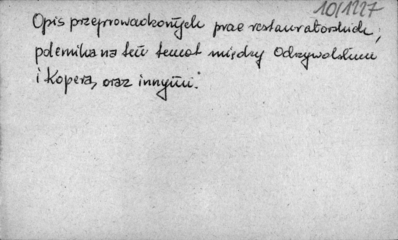 10/1227
Opis przeprowadzonych prac restauratorskich;
polemika na ten temat między Odrzywolskim
i Koperą, oraz innymi.